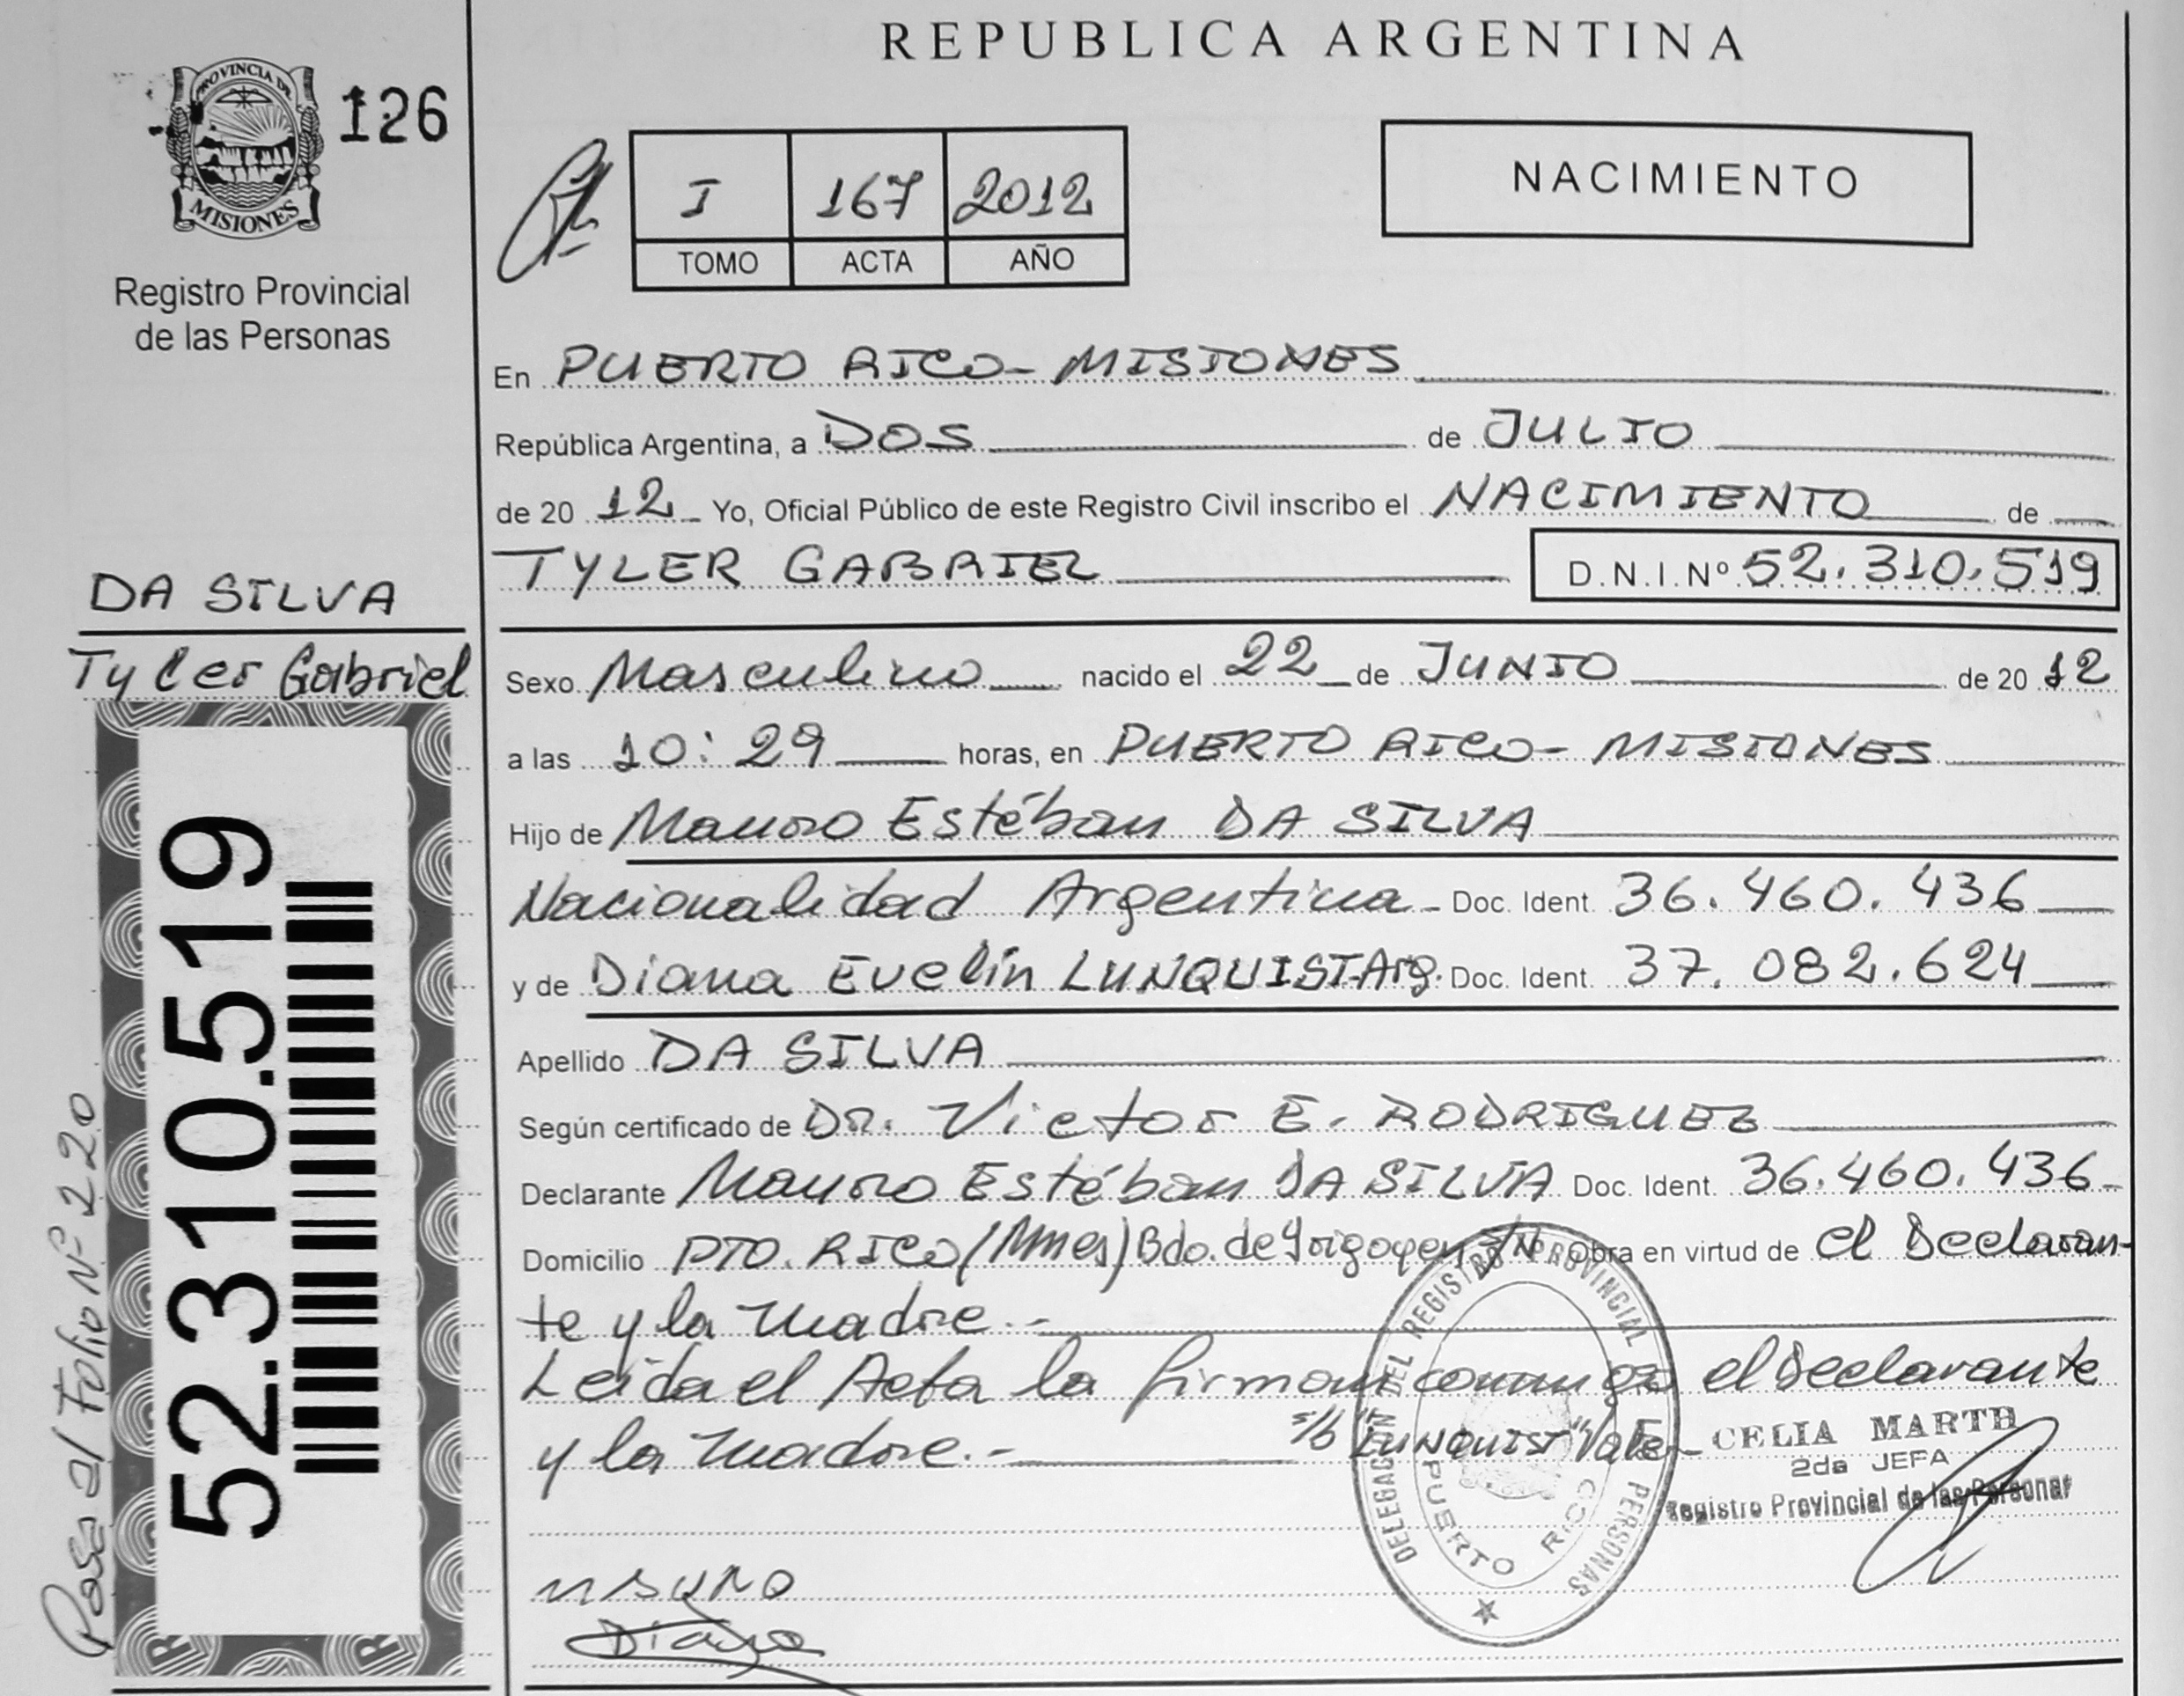 REPUBLICA ARGENTINA
PROVINCIA DE
MISIONES
126
Registro Provincial
de las Personas
I 167 2012
TOMO ACTA AÑO
NACIMIENTO
En PUERTO RICO - MISIONES
República Argentina, a DOS de JULIO
de 20 12 Yo, Oficial Público de este Registro Civil inscribo el NACIMIENTO de
TYLER GABRIEL D.N.I.Nº 52.310.519
DA SILVA
Tyler Gabriel
Sexo Masculino nacido el 22 de JUNIO de 20 12
a las 10:29 horas, en PUERTO RICO - MISIONES
Hijo de Mauro Estéban DA SILVA
Nacionalidad Argentina - Doc. Ident. 36.460.436
y de Diana Evelin LUNQUIST Arg. Doc. Ident. 37.082.624
Apellido DA SILVA
Según certificado de Dr. Victor E. RODRIGUEZ
Declarante Mauro Estéban DA SILVA Doc. Ident. 36.460.436
Domicilio PTO. RICO (Mnes) Bdo. de Irigoyen S/N Obra en virtud de el Declaran-
te y la madre.-
Leida el Acta la firman conmigo el Declarante
y la madre.- s/b "LUNQUIST" Vale-
52.310.519
Pasa al Folio Nº 220
DELEGACION DEL REGISTRO PROVINCIAL DE PERSONAS
PUERTO RICO
CELIA MARTH
2da JEFA
Registro Provincial de las Personas
MAURO
Diana